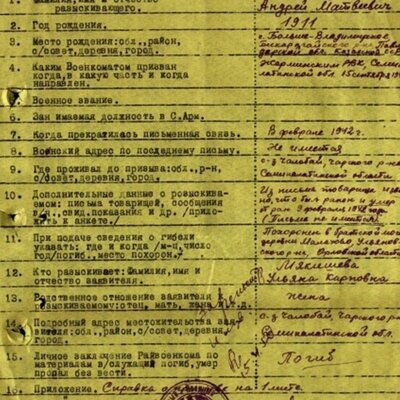 1. Фамилия, имя и отчество
разыскиваемого.
Андрей Матвеевич
2. Год рождения.
1911
3. Место рождения: обл., район,
с/совет, деревня, город.
с. Больше-Владимирское,
Бескарагайского р-на Павло-
дарской обл.
4. Каким Военкоматом призван
когда, в какую часть и когда
направлен.
Жарминским РВК, Семипа-
латинской обл. 15 сентября
5. Военное звание.
6. Занимаемая должность в С.Арм.
7. Когда прекратилась письменная связь.
В феврале 1942г.
8. Воинский адрес по последнему письму.
Не имеется
9. Где проживал до призыва: обл., р-н,
с/совет, деревня, город.
с-з Чалобай, Чарского р-на
Семипалатинской области
10. Дополнительные данные о розыскива-
емом: письма товарищей, сообщения
в/ч, свид. показания и др. /прило-
жить к анкете./
Из письма товарища извест-
но, что был ранен и умер
от ран 9 февраля 1942 года
(Письмо не имеется)
11. При подаче сведения о гибели
указать: где и когда /м-ц, число
год/погиб, место похорон./
Похоронен в братской могиле
деревни Малахово, Ульянов-
ского р-на, Орловской области
12. Кто разыскивает: Фамилия, имя и
отчество заявителя.
Мякишева
Ульяна Карповна
13. Родственное отношение заявителя
к разыскиваемому: отец, мать, жена
жена
14. Подробный адрес местожительства зая-
вителя: обл., район, с/совет, деревня,
город.
с-з Чалобай, Чарского р-на
Семипалатинской обл.
15. Личное заключение Райвоенкома по
материалам в/служащий погиб, умер
пропал без вести.
Погиб
16. Приложение. Справка о на 1 листе.